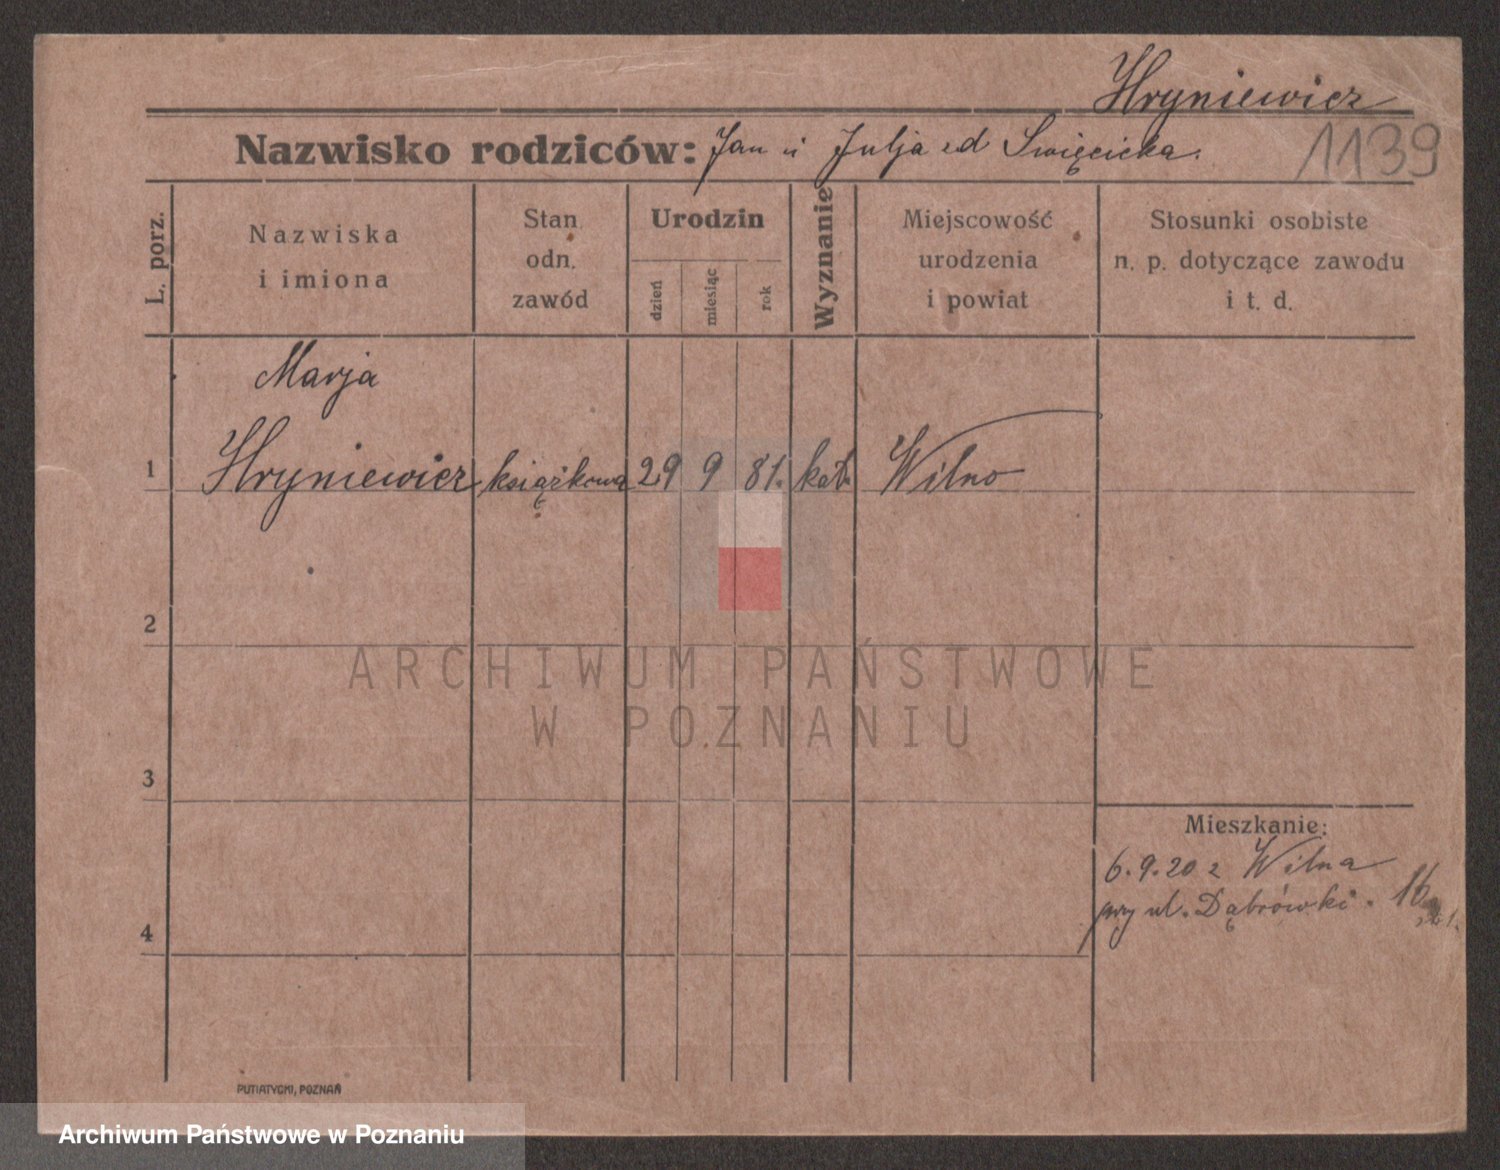 Hryniewicz
Nazwisko rodziców: Jan i Julja z d Święcicka.
1139
L. porz.
Nazwiska
i imiona
Stan
odn.
zawód
Urodzin
dzień
miesiąc
rok
Wyznanie
Miejscowość
urodzenia
i powiat
Stosunki osobiste
n. p. dotyczące zawodu
i t. d.
Marja
1 Hryniewicz książkowa 29 9 81. kat. Wilno
2
ARCHIWUM PAŃSTWOWE
W POZNANIU
3
Mieszkanie:
6.9.20 z Wilna
przy ul. Dąbrówki. 16
4
PUTIATYCKI, POZNAŃ
Archiwum Państwowe w Poznaniu